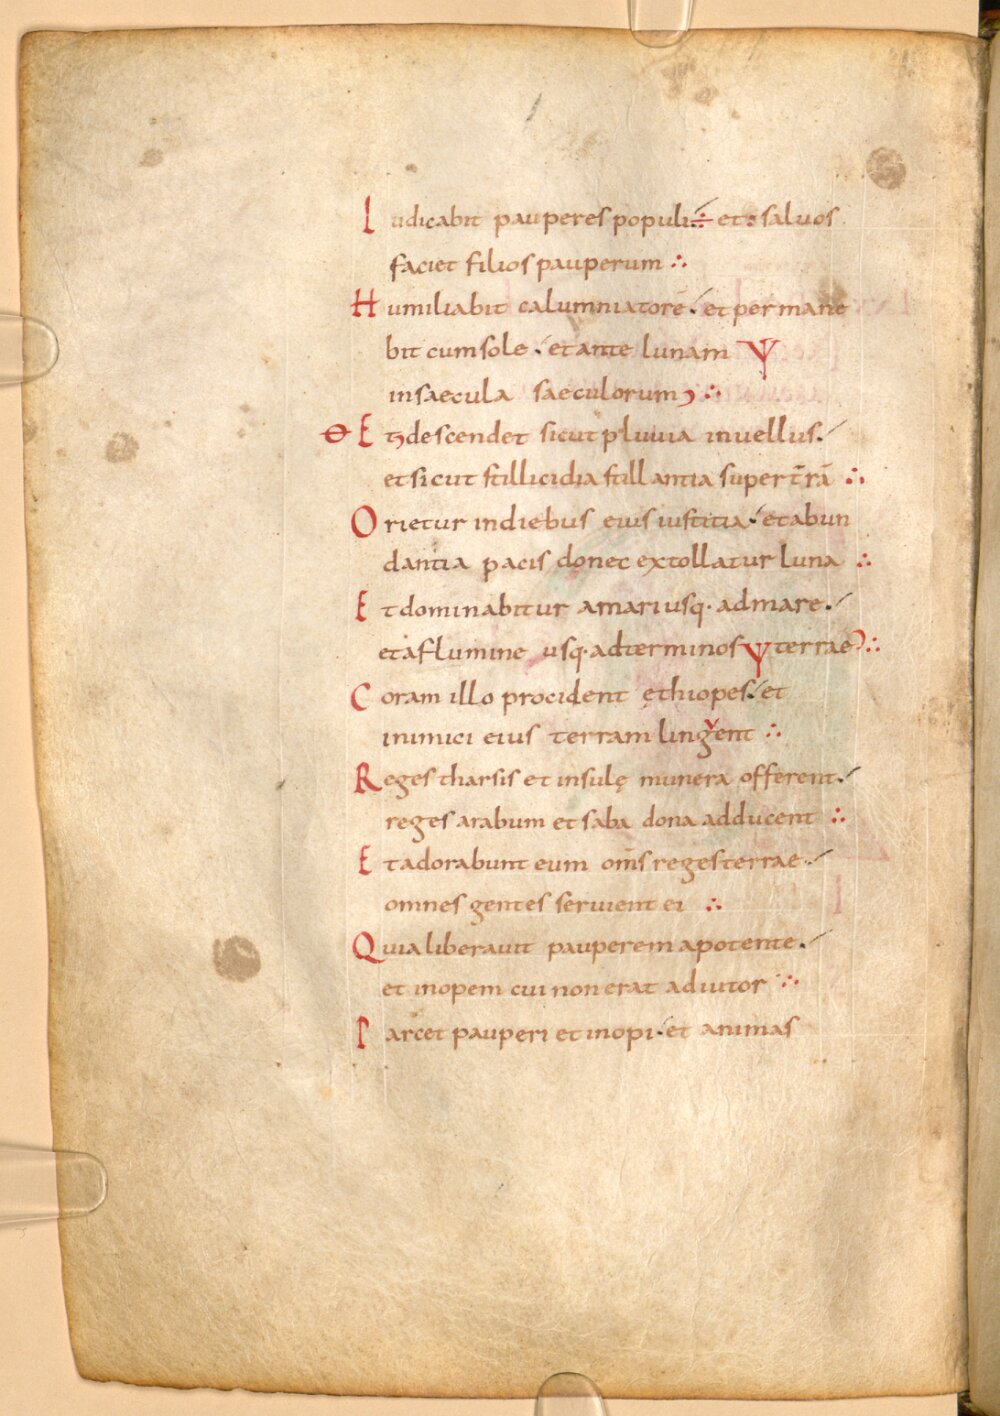 Iudicabit pauperes populi ÷ et : saluos
faciet filios pauperum ∴
Humiliabit calumniatorē . et permane
bit cum sole . et ante lunam ψ
in saecula saeculorum ∴
Et descendet sicut pluuia in uellus .
et sicut stillicidia stillantia super t̄rā ∴
Orietur in diebus eius iustitia . et abun
dantia pacis donec extollatur luna ∴
Et dominabitur a mari usq· ad mare .
et a flumine usq· ad terminos ψ terrae ∴
Coram illo procident ethiopes . et
inimici eius terram lingent ∴
Reges tharsis et insulę munera offerent .
reges arabum et saba dona adducent ∴
Et adorabunt eum om̄s reges terrae .
omnes gentes seruient ei ∴
Quia liberauit pauperem a potente .
et inopem cui non erat adiutor ∴
Parcet pauperi et inopi . et animas